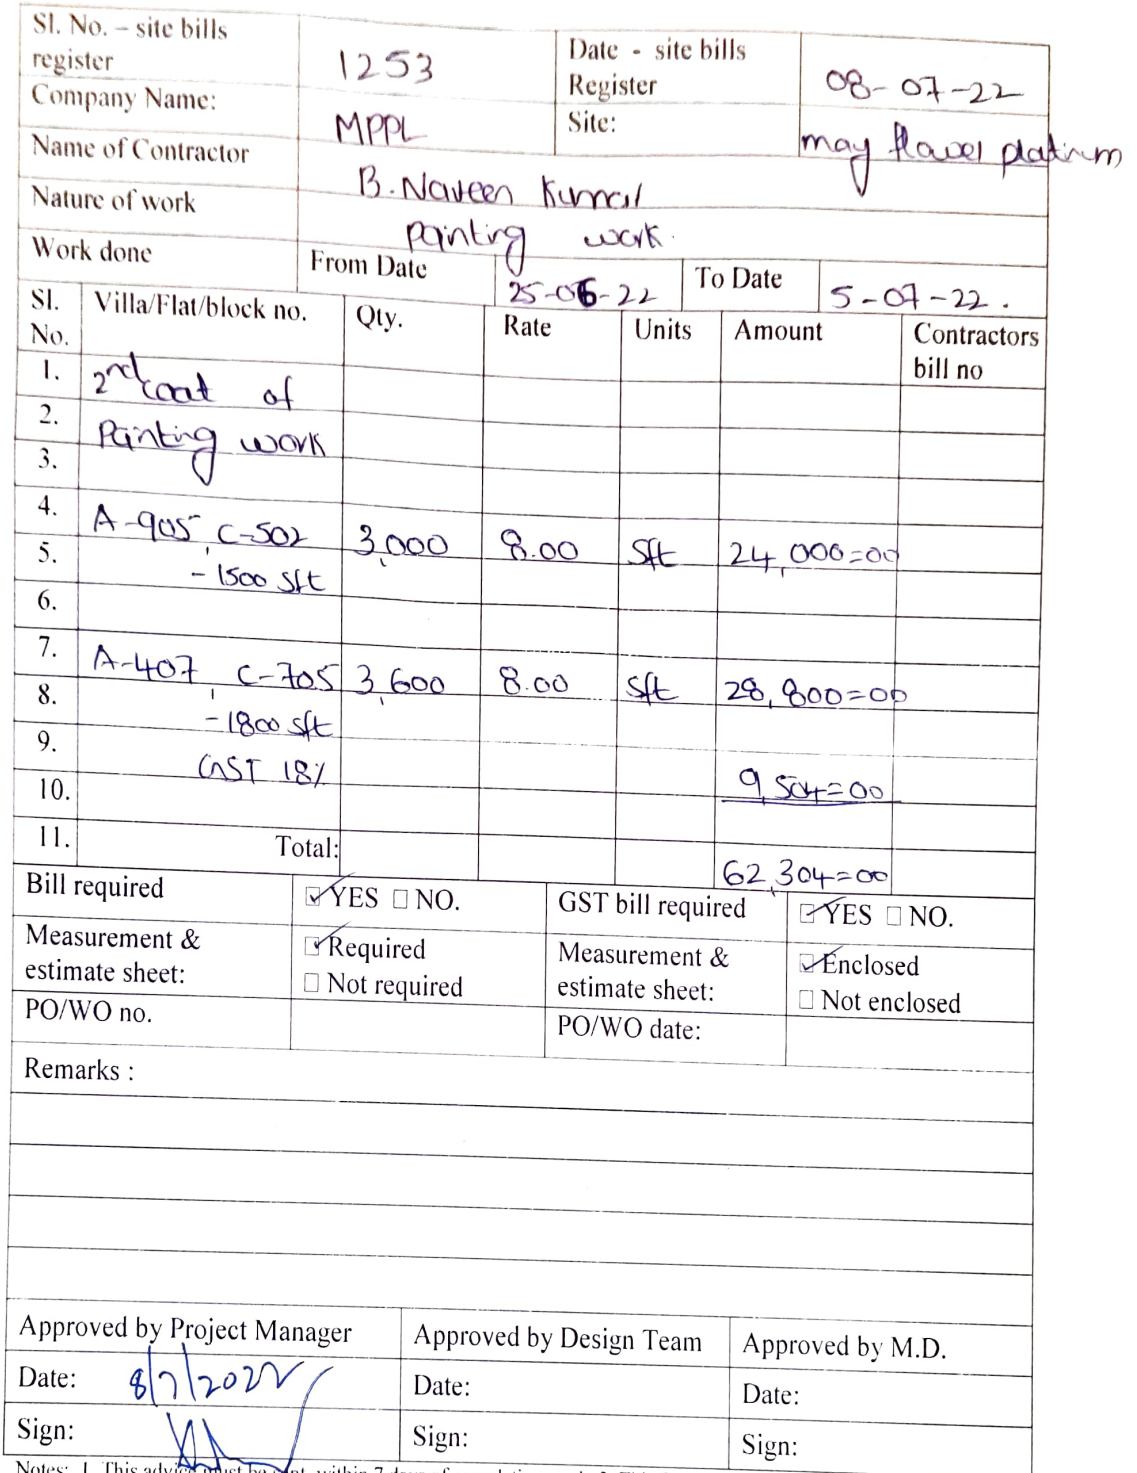 Sl. No. – site bills register 1253 Date - site bills Register 08-07-22
Company Name: MPPL Site: may flower platinum
Name of Contractor B. Naveen Kumar
Nature of work painting work.
Work done From Date 25-06-22 To Date 5-07-22.
Sl. No. Villa/Flat/block no. Qty. Rate Units Amount Contractors bill no
1. 2nd coat of
2. Painting work
3.
4. A-905, C-502 3,000 8.00 Sft 24,000=00
5. - 1500 Sft
6.
7. A-407, C-705 3,600 8.00 Sft 28,800=00
8. - 1800 sft
9. GST 18% 9,504=00
10.
11. Total: 62,304=00
Bill required ☑ YES ☐ NO. GST bill required ☑ YES ☐ NO.
Measurement & estimate sheet: ☑ Required ☐ Not required Measurement & estimate sheet: ☑ Enclosed ☐ Not enclosed
PO/WO no. PO/WO date:
Remarks :
Approved by Project Manager Approved by Design Team Approved by M.D.
Date: 8/7/2022 Date: Date:
Sign: Sign: Sign:
Notes: 1. This advice must be